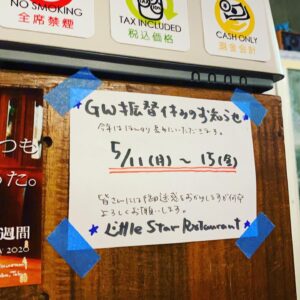 NO SMOKING
全席禁煙
TAX INCLUDED
税込価格
CASH ONLY
現金会計
★GW振替休みのお知らせ
今年はほんのり長めにいただきます。
5/11(月)〜15(金)
皆さんにはご迷惑をおかけしますが何卒
よろしくお願いします。
★Little Star Restaurant★
つも
った。
週間
2020